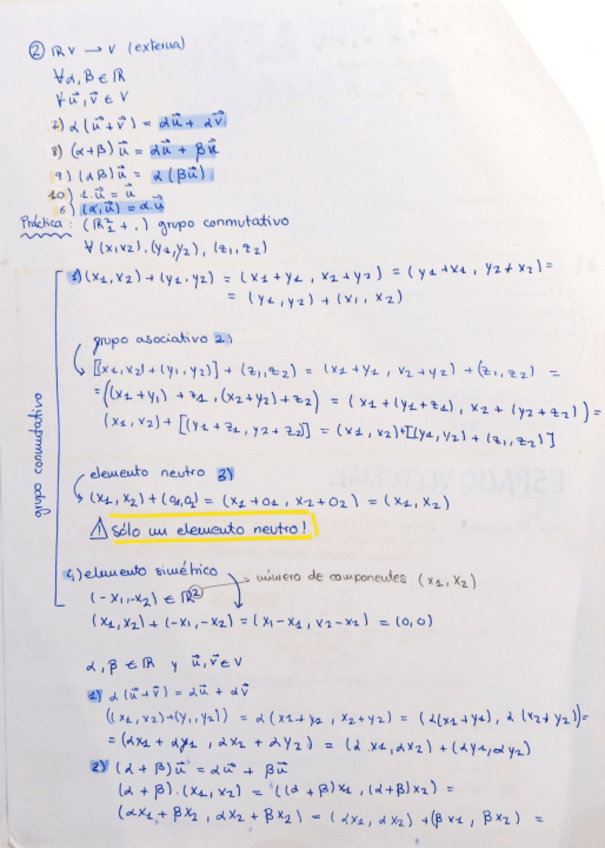 ② ℝV → V (externa)
∀α, β ∈ ℝ
∀ū⃗, v⃗ ∈ V
7) α(u⃗+v⃗) = αu⃗ + αv⃗
8) (α+β)u⃗ = αu⃗ + βu⃗
9) (αβ)u⃗ = α(βu⃗)
10) 1·u⃗ = u⃗
6) (α,u⃗) = α·u⃗
Práctica: (ℝ², +, ·) grupo conmutativo
∀ (x1,x2), (y1,y2), (z1,z2)
1) (x1,x2) + (y1,y2) = (x1+y1, x2+y2) = (y1+x1, y2+x2) =
= (y1,y2) + (x1,x2)
grupo asociativo 2)
[(x1,x2) + (y1,y2)] + (z1,z2) = (x1+y1, x2+y2) + (z1,z2) =
= ((x1+y1) + z1, (x2+y2) + z2) = (x1+(y1+z1), x2+(y2+z2)) =
(x1,x2) + [(y1+z1, y2+z2)] = (x1,x2) + [(y1,y2) + (z1,z2)]
grupo conmutativo
elemento neutro 3)
(x1,x2) + (01,02) = (x1+01, x2+02) = (x1,x2)
⚠ sólo un elemento neutro!
4) elemento simétrico
(-x1,-x2) ∈ ℝ² → número de componentes (x1,x2)
(x1,x2) + (-x1,-x2) = (x1-x1, x2-x2) = (0,0)
α, β ∈ ℝ y u⃗, v⃗ ∈ V
1) α(u⃗+v⃗) = αu⃗ + αv⃗
((x1,x2)+(y1,y2)) = α(x1+y2, x2+y2) = (α(x1+y1), α(x2+y2)) =
= (αx1 + αy1, αx2 + αy2) = (α x1, αx2) + (αy1, αy2)
2) (α + β)u⃗ = αu⃗ + βu⃗
(α + β)·(x1,x2) = ((α+β)x1, (α+β)x2) =
(αx1 + βx2, αx2 + βx2) = (αx1, αx2) + (βx1, βx2) =